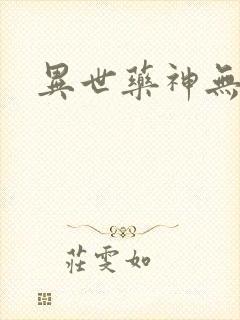 異世藥神無
莊雯如